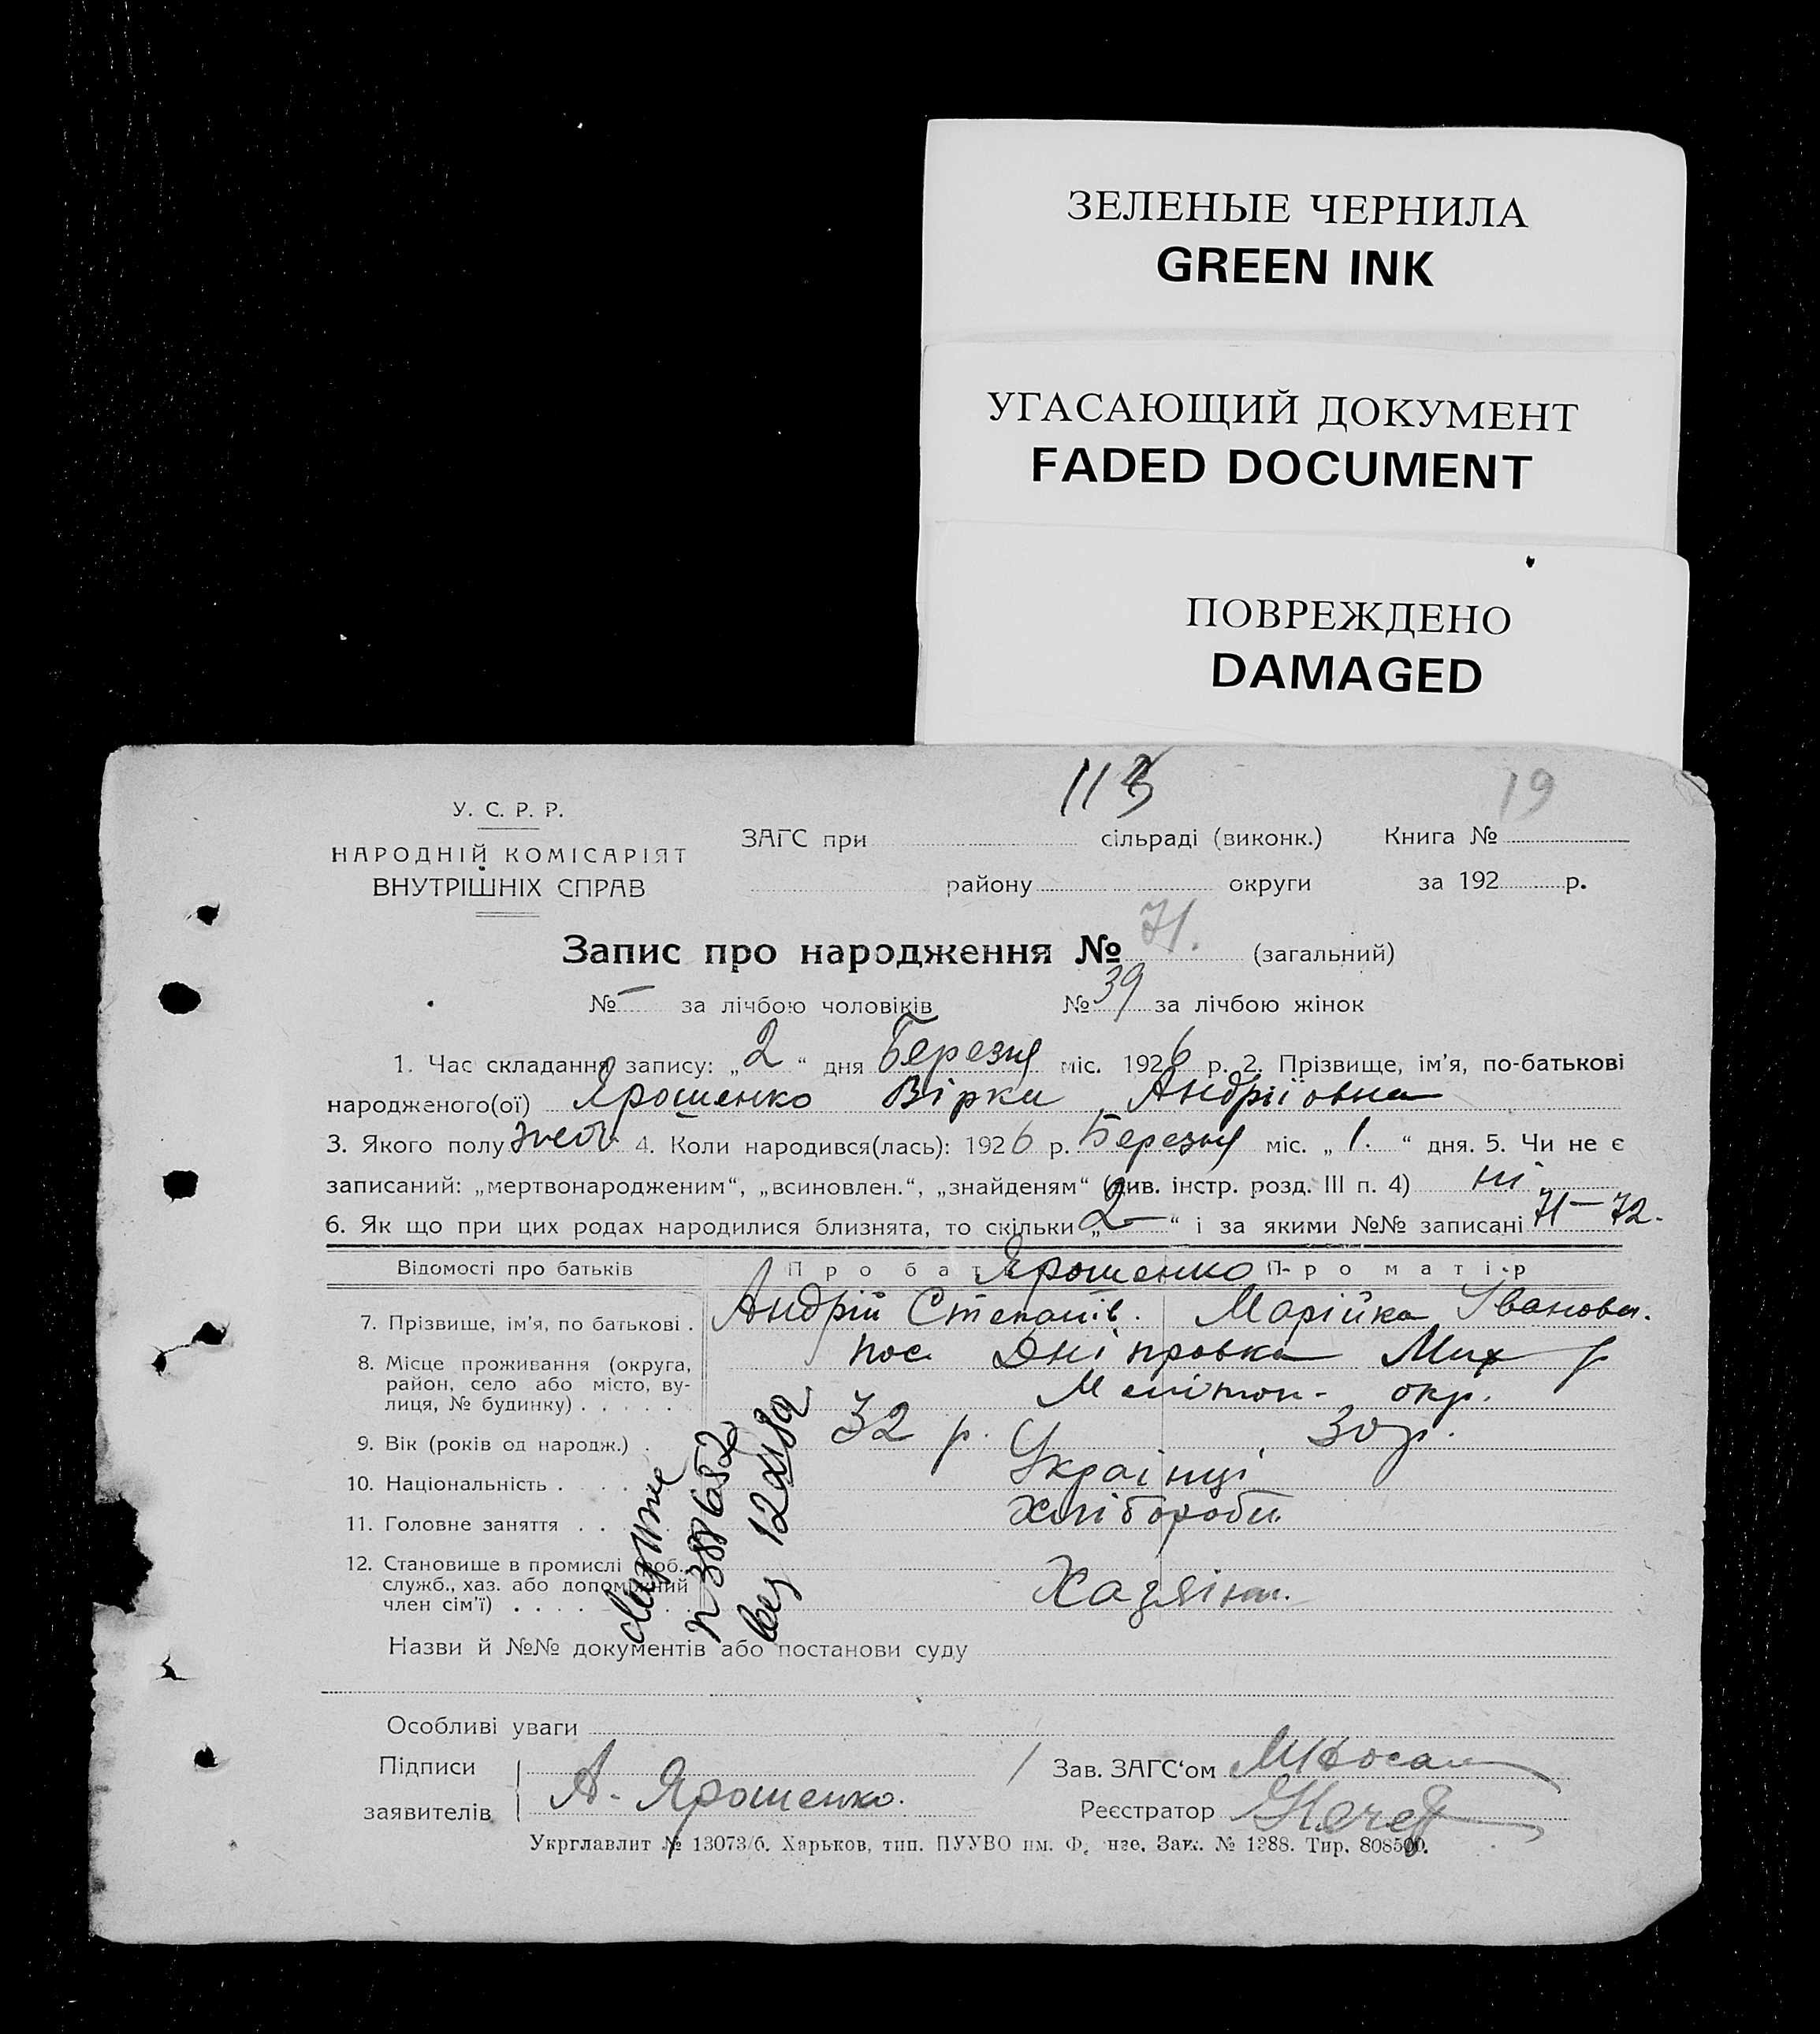 ЗЕЛЕНЫЕ ЧЕРНИЛА
GREEN INK
УГАСАЮЩИЙ ДОКУМЕНТ
FADED DOCUMENT
ПОВРЕЖДЕНО
DAMAGED
113 19
У. С. Р. Р.
НАРОДНІЙ КОМІСАРІЯТ
ВНУТРІШНІХ СПРАВ
ЗАГС при сільраді (виконк.) Книга №
району округи за 192 р.
Запис про народження № 71. (загальний)
№ — за лічбою чоловіків № 39 за лічбою жінок
1. Час складання запису: „2“ дня Березня міс. 1926 р. 2. Прізвище, ім'я, по-батькові
народженого(ої) Ярошенко Вірка Андріївна
3. Якого полу жеοч 4. Коли народився(лась): 1926 р. Березня міс. „1.“ дня. 5. Чи не є
записаний: „мертвонародженим“, „всиновлен.“, „знайденям“ (див. інстр. розд. III п. 4) ні
6. Як що при цих родах народилися близнята, то скільки „2—“ і за якими №№ записані 71—72.
Відомості про батьків Про бат Ярошенко Про матір
7. Прізвище, ім'я, по батькові . Андрій Степанів. Марійка Іванови.
8. Місце проживання (округа, пос. Дніпровка Мих р
район, село або місто, ву-
лиця, № будинку) . . . . . Меліtoп. окр.
9. Вік (років од народж.) . 32 р. 30 р.
10. Національність . . . . Українці
11. Головне заняття . . Хлібороби
12. Становище в промислі роб.,
служб., хаз. або допоміжний
член сім'ї) . . . . Хазяїни.
Назви й №№ документів або постанови суду
Особливі уваги
Підписи
заявителів А. Ярошенко.
Зав. ЗАГС'ом
Реєстратор
Укрглавлит № 13073/б. Харьков, тип. ПУУВО им. Ф. нзе. Зак. № 1388. Тир. 808500.